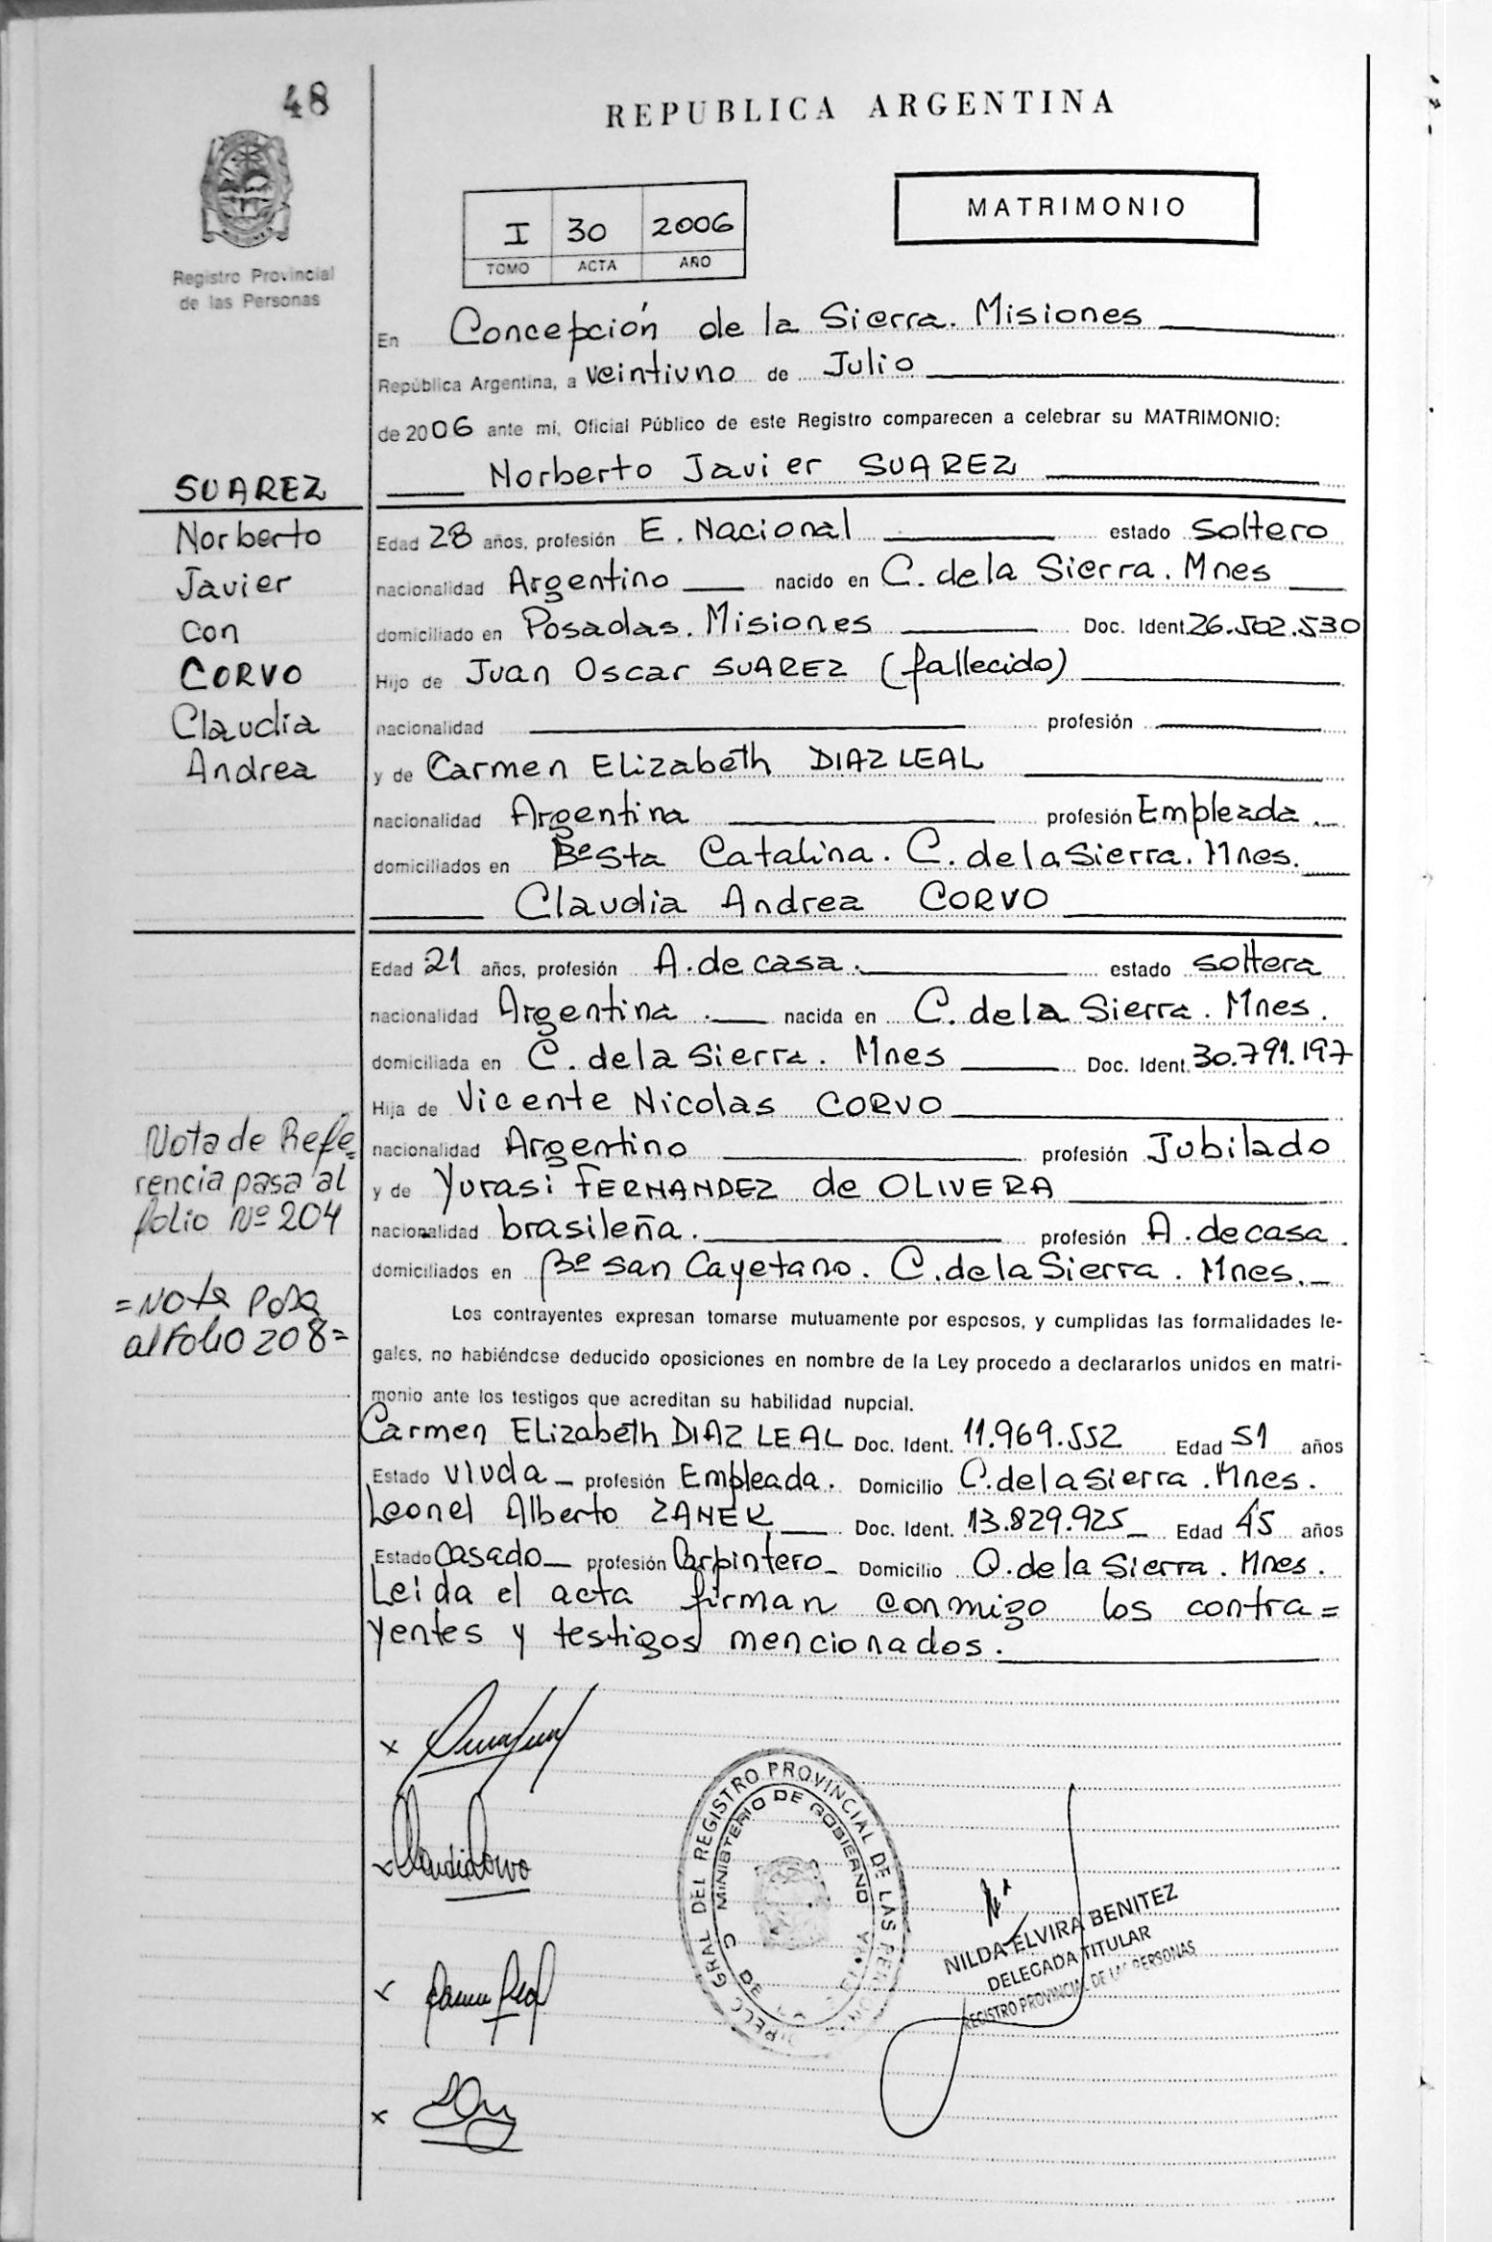 48
REPUBLICA ARGENTINA
MATRIMONIO
I 30 2006
TOMO ACTA AÑO
Registro Provincial
de las Personas
En Concepción de la Sierra. Misiones
República Argentina, a veintiuno de Julio
de 2006 ante mí, Oficial Público de este Registro comparecen a celebrar su MATRIMONIO:
Norberto Javier SUAREZ
SUAREZ
Norberto
Javier
con
CORVO
Claudia
Andrea
Edad 28 años, profesión E. Nacional estado soltero
nacionalidad Argentino nacido en C. de la Sierra. Mnes
domiciliado en Posadas. Misiones Doc. Ident. 26.502.530
Hijo de Juan Oscar SUAREZ (fallecido)
nacionalidad profesión
y de Carmen Elizabeth DIAZ LEAL
nacionalidad Argentina profesión Empleada.
domiciliados en Bº Sta Catalina. C. de la Sierra. Mnes.
Claudia Andrea CORVO
Edad 21 años, profesión A. de casa. estado soltera
nacionalidad Argentina. nacida en C. de la Sierra. Mnes.
domiciliada en C. de la Sierra. Mnes Doc. Ident. 30.791.197
Hija de Vicente Nicolas CORVO
nacionalidad Argentino profesión Jubilado
y de Yurasi FERNANDEZ de OLIVERA
nacionalidad brasileña. profesión A. de casa.
domiciliados en Bº San Cayetano. C. de la Sierra. Mnes.
Nota de Refe=
rencia pasa al
folio Nº 204
=Nota pasa
al Folio 208=
Los contrayentes expresan tomarse mutuamente por esposos, y cumplidas las formalidades le-
gales, no habiéndose deducido oposiciones en nombre de la Ley procedo a declararlos unidos en matri-
monio ante los testigos que acreditan su habilidad nupcial.
Carmen Elizabeth DIAZ LEAL Doc. Ident. 11.969.552 Edad 51 años
Estado viuda profesión Empleada. Domicilio C. de la Sierra. Mnes.
Leonel Alberto ZANEK Doc. Ident. 13.829.925 Edad 45 años
Estado Casado profesión Carpintero Domicilio C. de la Sierra. Mnes.
Leida el acta firman conmigo los contra=
yentes y testigos mencionados.
x
x Claudia Corvo
x
x
DIRECC GRAL DEL REGISTRO PROVINCIAL DE LAS PERSONAS
MINISTERIO DE GOBIERNO
NILDA ELVIRA BENITEZ
DELEGADA TITULAR
REGISTRO PROVINCIAL DE LAS PERSONAS